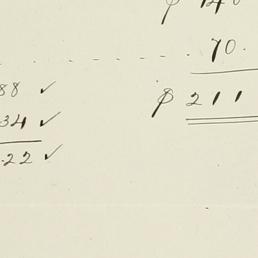 70.
88 ✓
$ 211
34 ✓
.22 ✓